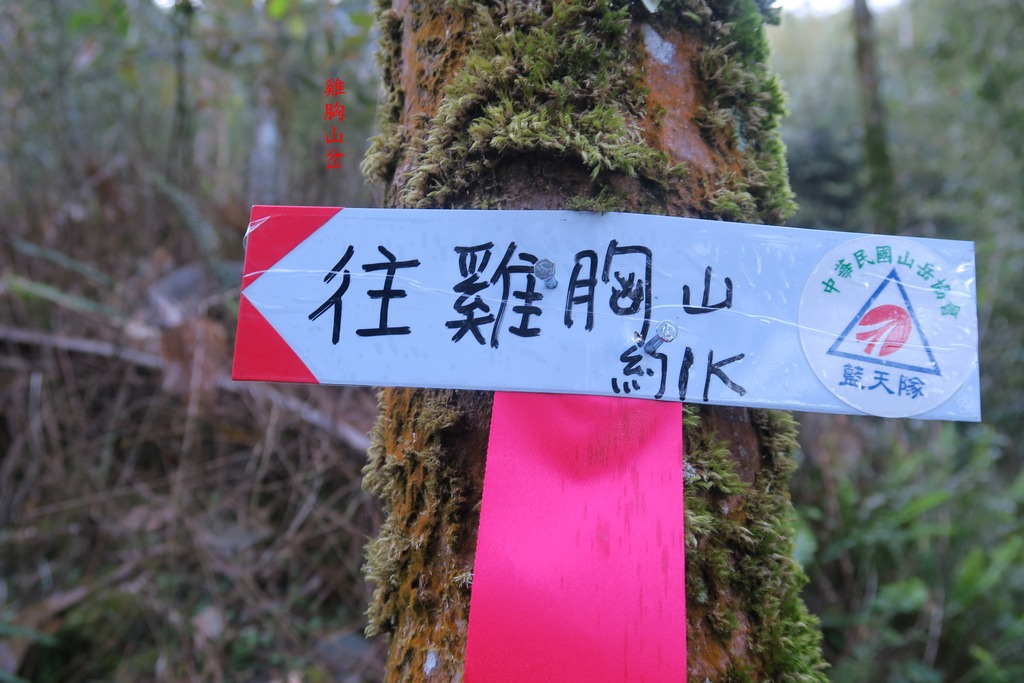 雞胸山岔
往雞胸山
約1K
中華民國山岳協會
藍天隊